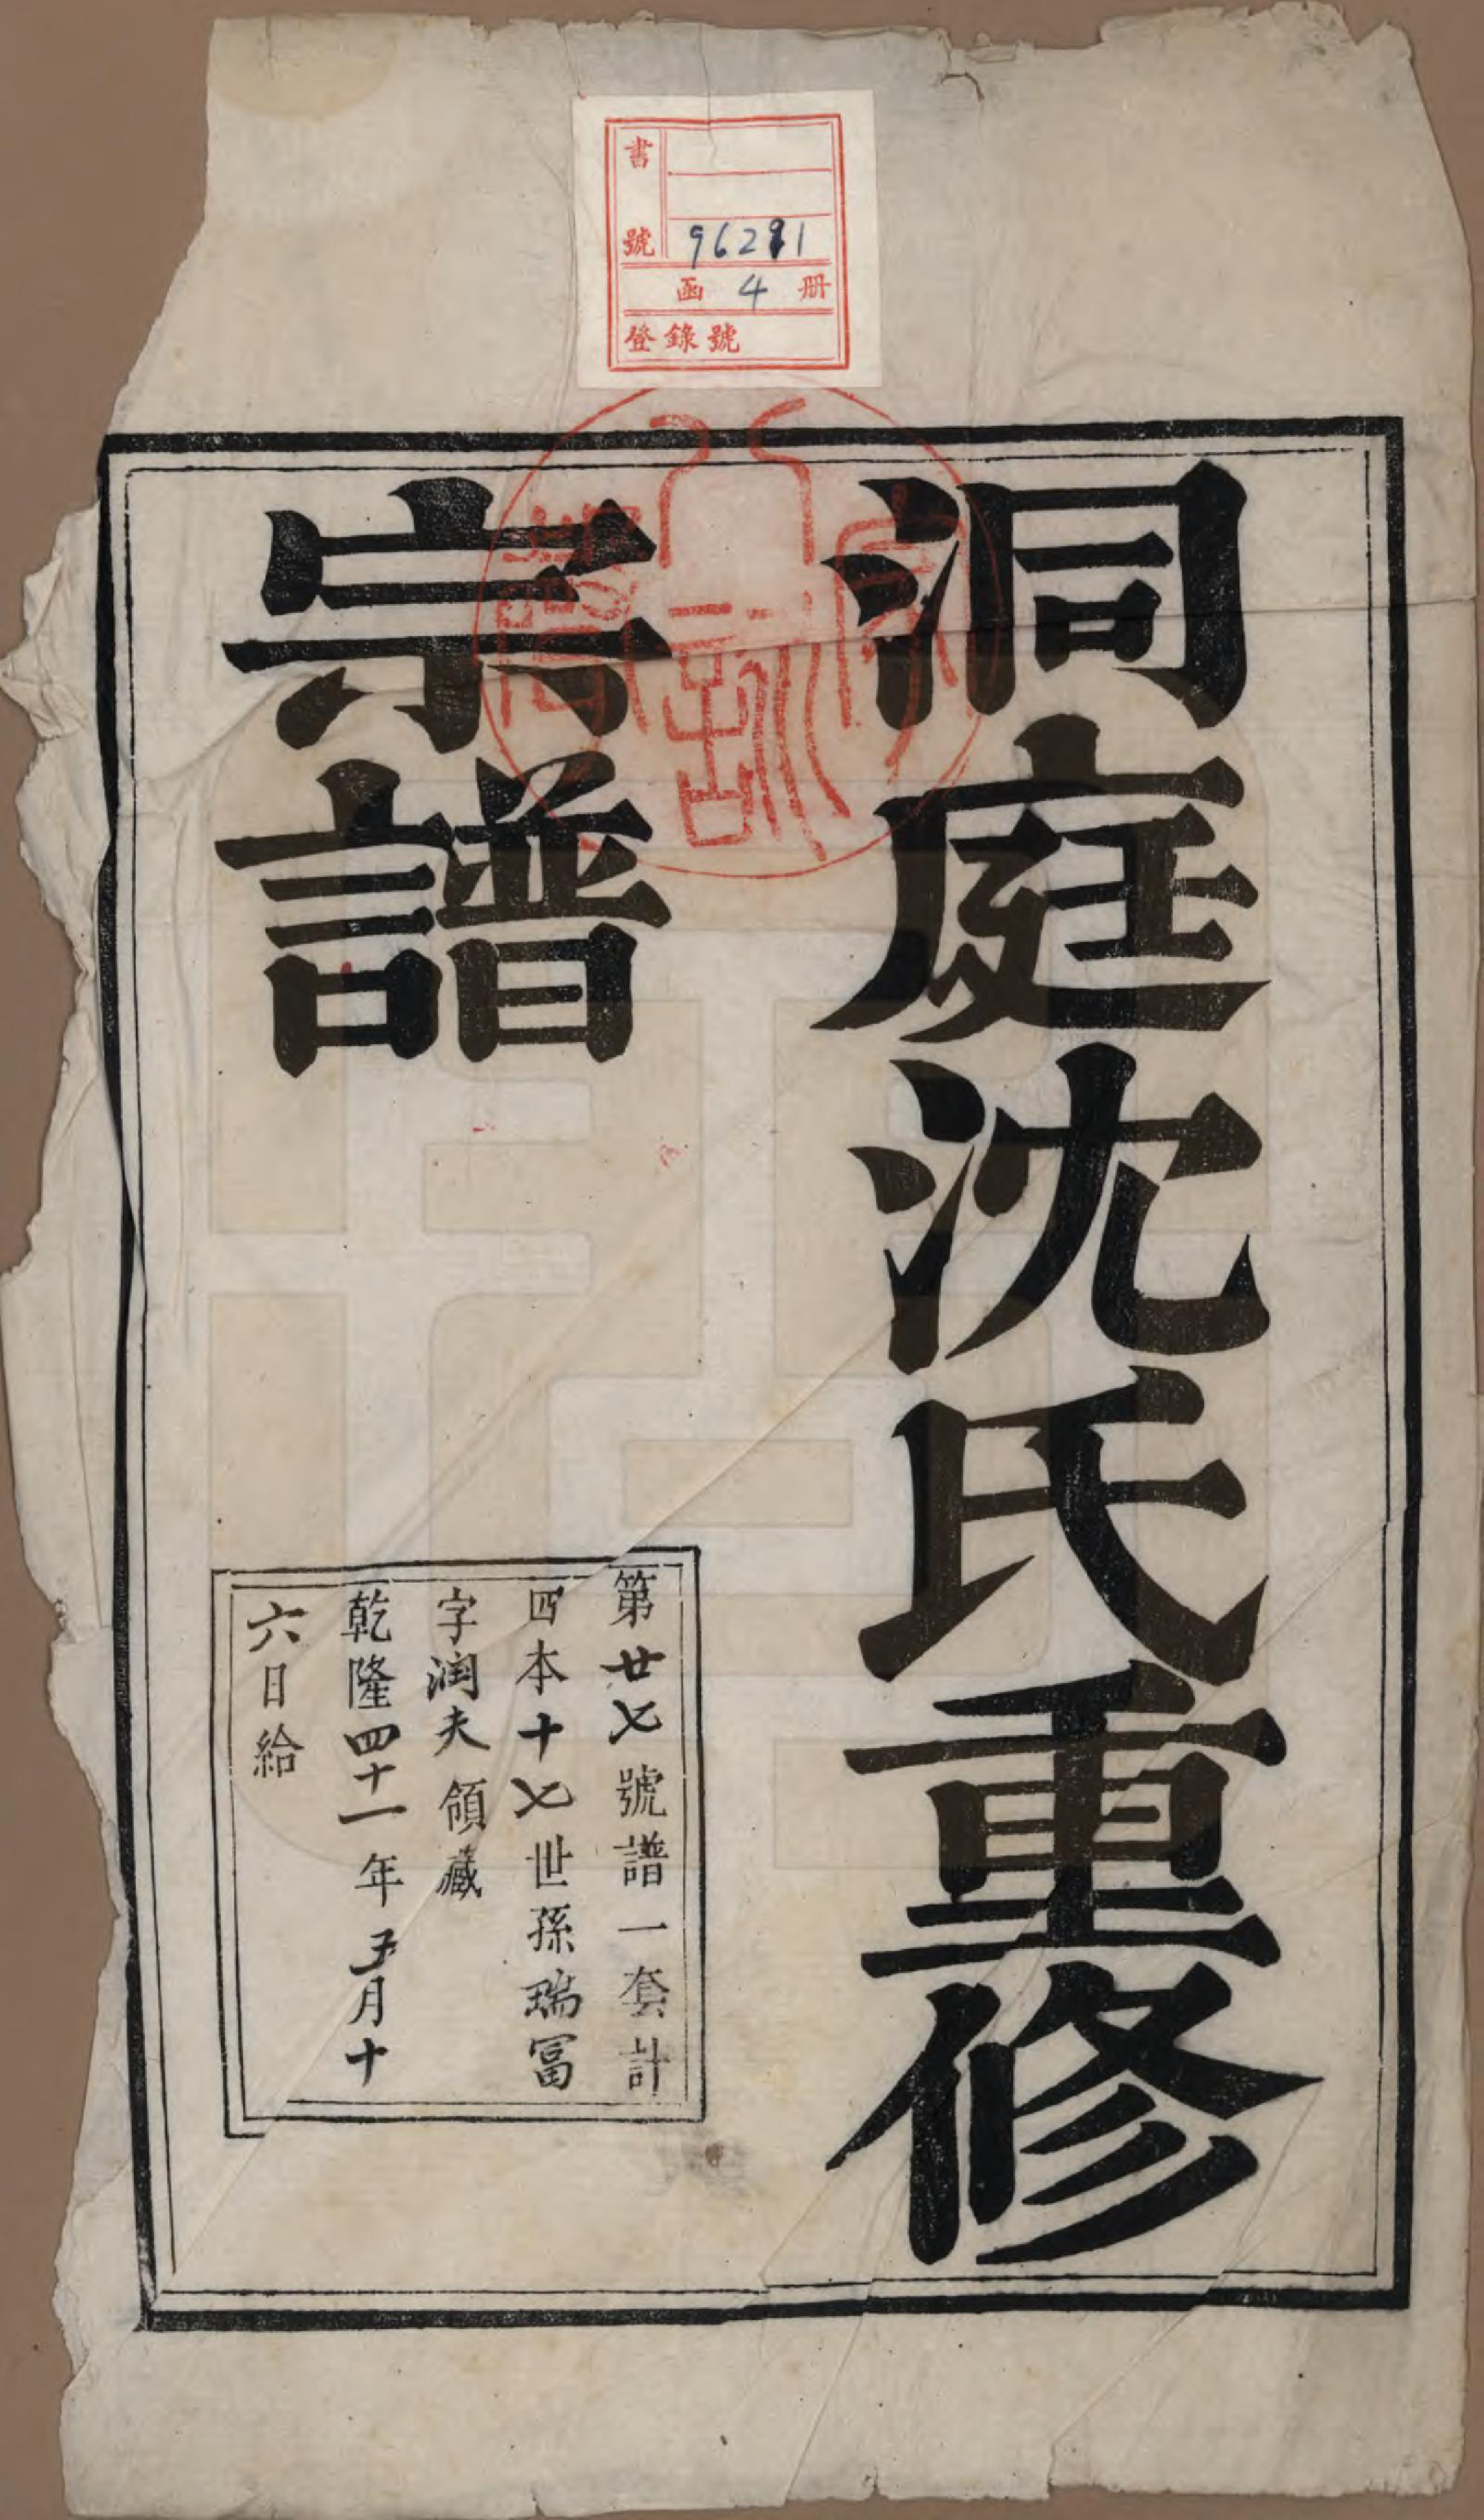 書號 96291
函 4 册
登錄號
洞庭沈氏重修
宗譜
第廿七號譜一套計
四本十七世孫瑞冨
字潤夫領藏
乾隆四十一年五月十
六日給